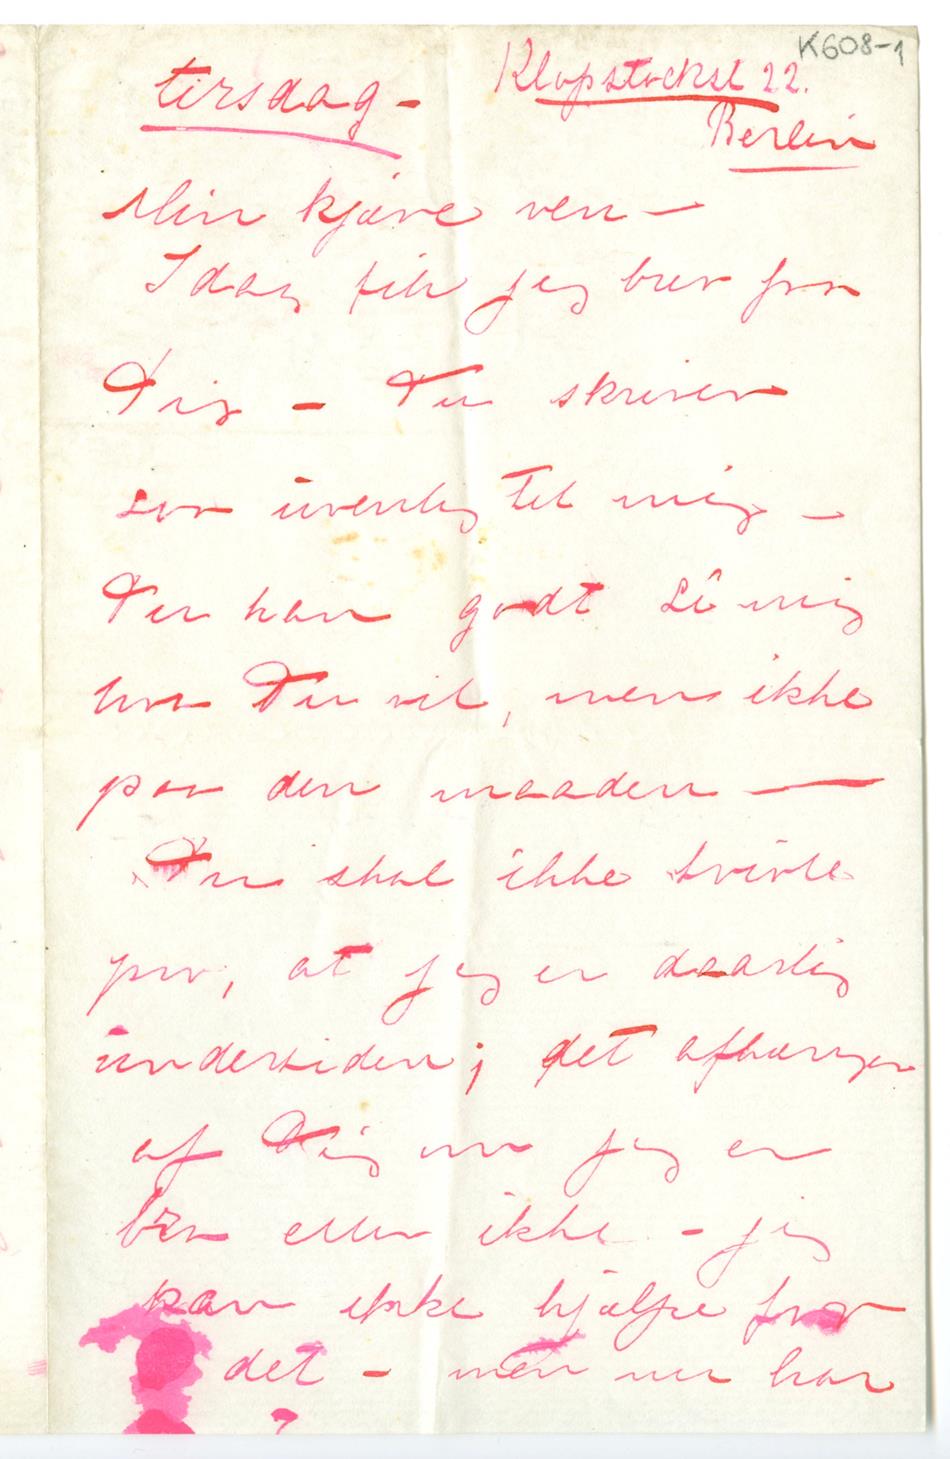 K608-1
tirsdag - Klopstockst 22.
Berlin
Min kjære ven —
Idag fik jeg brev fra
Dig - Du skriver
saa uvenlig til mig -
Du kan godt si mig
hva Du vil, men ikke
paa den maaden —
Du skal ikke tvivle
paa, at jeg er daarlig
undertiden; det afhænger
af Dig om jeg er
bra eller ikke - jeg
kan ikke hjælpe for
det - men nu har